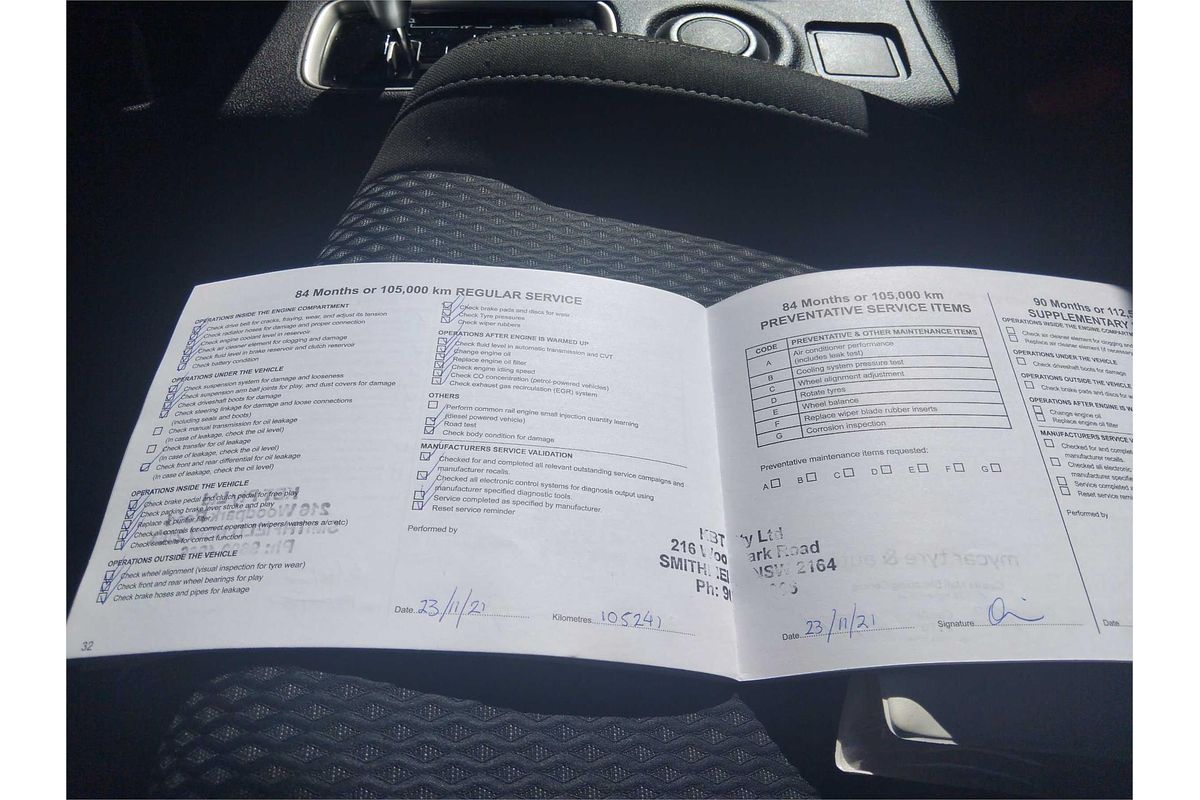 84 Months or 105,000 km REGULAR SERVICE
OPERATIONS INSIDE THE ENGINE COMPARTMENT
Check drive belt for cracks, fraying, wear, and adjust its tension
Check radiator hoses for damage and proper connection
Check engine coolant level in reservoir
Check air cleaner element for clogging and damage
Check fluid level in brake reservoir and clutch reservoir
Check battery condition
OPERATIONS UNDER THE VEHICLE
Check suspension system for damage and looseness
Check suspension arm ball joints for play, and dust covers for damage
Check driveshaft boots for damage
Check steering linkage for damage and loose connections
(including seals and boots)
Check manual transmission for oil leakage
(In case of leakage, check the oil level)
Check transfer for oil leakage
(In case of leakage, check the oil level)
Check front and rear differential for oil leakage
(In case of leakage, check the oil level)
OPERATIONS INSIDE THE VEHICLE
Check brake pedal and clutch pedal for free play
Check parking brake lever stroke and play
Replace air purifier filter
Check all controls for correct operation (wipers/washers a/c etc)
Check seatbelts for correct function
OPERATIONS OUTSIDE THE VEHICLE
Check wheel alignment (visual inspection for tyre wear)
Check front and rear wheel bearings for play
Check brake hoses and pipes for leakage
32
Check brake pads and discs for wear
Check Tyre pressures
Check wiper rubbers
OPERATIONS AFTER ENGINE IS WARMED UP
Check fluid level in automatic transmission and CVT
Change engine oil
Replace engine oil filter
Check engine idling speed
Check CO concentration (petrol-powered vehicles)
Check exhaust gas recirculation (EGR) system
OTHERS
Perform common rail engine small injection quantity learning
(diesel powered vehicle)
Road test
Check body condition for damage
MANUFACTURERS SERVICE VALIDATION
Checked for and completed all relevant outstanding service campaigns and
manufacturer recalls.
Checked all electronic control systems for diagnosis output using
manufacturer specified diagnostic tools.
Service completed as specified by manufacturer.
Reset service reminder
Performed by
Date 23/11/21 Kilometres 105241
84 Months or 105,000 km
PREVENTATIVE SERVICE ITEMS
CODE PREVENTATIVE & OTHER MAINTENANCE ITEMS
A Air conditioner performance
(includes leak test)
B Cooling system pressure test
C Wheel alignment adjustment
D Rotate tyres
E Wheel balance
F Replace wiper blade rubber inserts
G Corrosion inspection
Preventative maintenance items requested:
A B C D E F G
ty Ltd
216 Woo ark Road
NSW 2164
Ph:
Date 23/11/21 Signature
90 Months or 112,5
SUPPLEMENTARY
OPERATIONS INSIDE THE ENGINE COMPARTM
Check air cleaner element for clogging and
Replace air cleaner element (if necessary
OPERATIONS UNDER THE VEHICLE
Check driveshaft boots for damage
OPERATIONS OUTSIDE THE VEHICLE
Check brake pads and discs for w
OPERATIONS AFTER ENGINE IS W
Change engine oil
Replace engine oil filter
MANUFACTURERS SERVICE V
Checked for and complet
manufacturer recalls.
Checked all electronic
manufacturer specifi
Service completed
Reset service remin
Performed by
Date